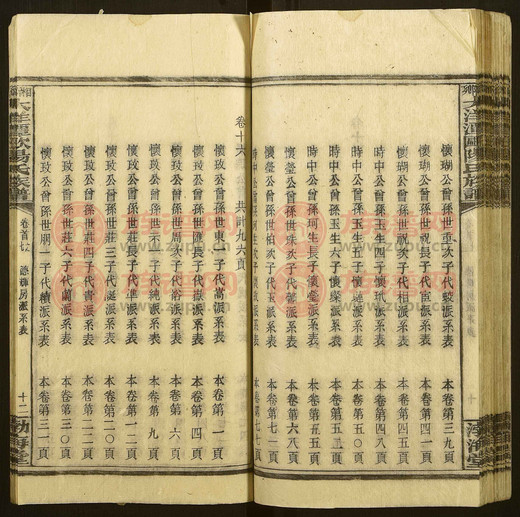 鄉大洋潭歐陽氏族譜
懷瑚公曾孫世重次子代駿派系表 本卷第三九頁
懷瑚公曾孫世祝長子代臣派系表 本卷第四〇頁
懷瑚公曾孫世祝次子代相派系表 本卷第四五頁
時中公曾孫玉生四子懷玑派系表 本卷第四八頁
時中公曾孫玉生五子懷派系表 本卷第五〇頁
時中公曾孫玉生六子懷璨派系表 本卷第五四頁
時中公曾孫珂生長子懷瑩派系表 本卷第五五頁
懷瑩公曾孫世柏次子代玉派系表 本卷第六八頁
時中公曾孫珂生次子懷玫派系表 本卷第七七頁
卷十六 共計九六頁
懷玫公曾孫世東一子代萬派系表 本卷第一頁
懷玫公曾孫世長子代派系表 本卷第四頁
懷玫公曾孫世周次子代浴派系表 本卷第六頁
懷玫公曾孫世示一子代純派系表 本卷第九頁
懷玫公曾孫世示三子代派系表 本卷第一二頁
懷玫公曾孫世莊四子代書派系表 本卷第二〇頁
懷玫公曾孫世莊六子代蘭派系表 本卷第三〇頁
懷玫公曾孫世炳一子代積派系表 本卷第三一頁
大洋潭歐陽氏族譜 卷首 房派系表 十二 渤海堂